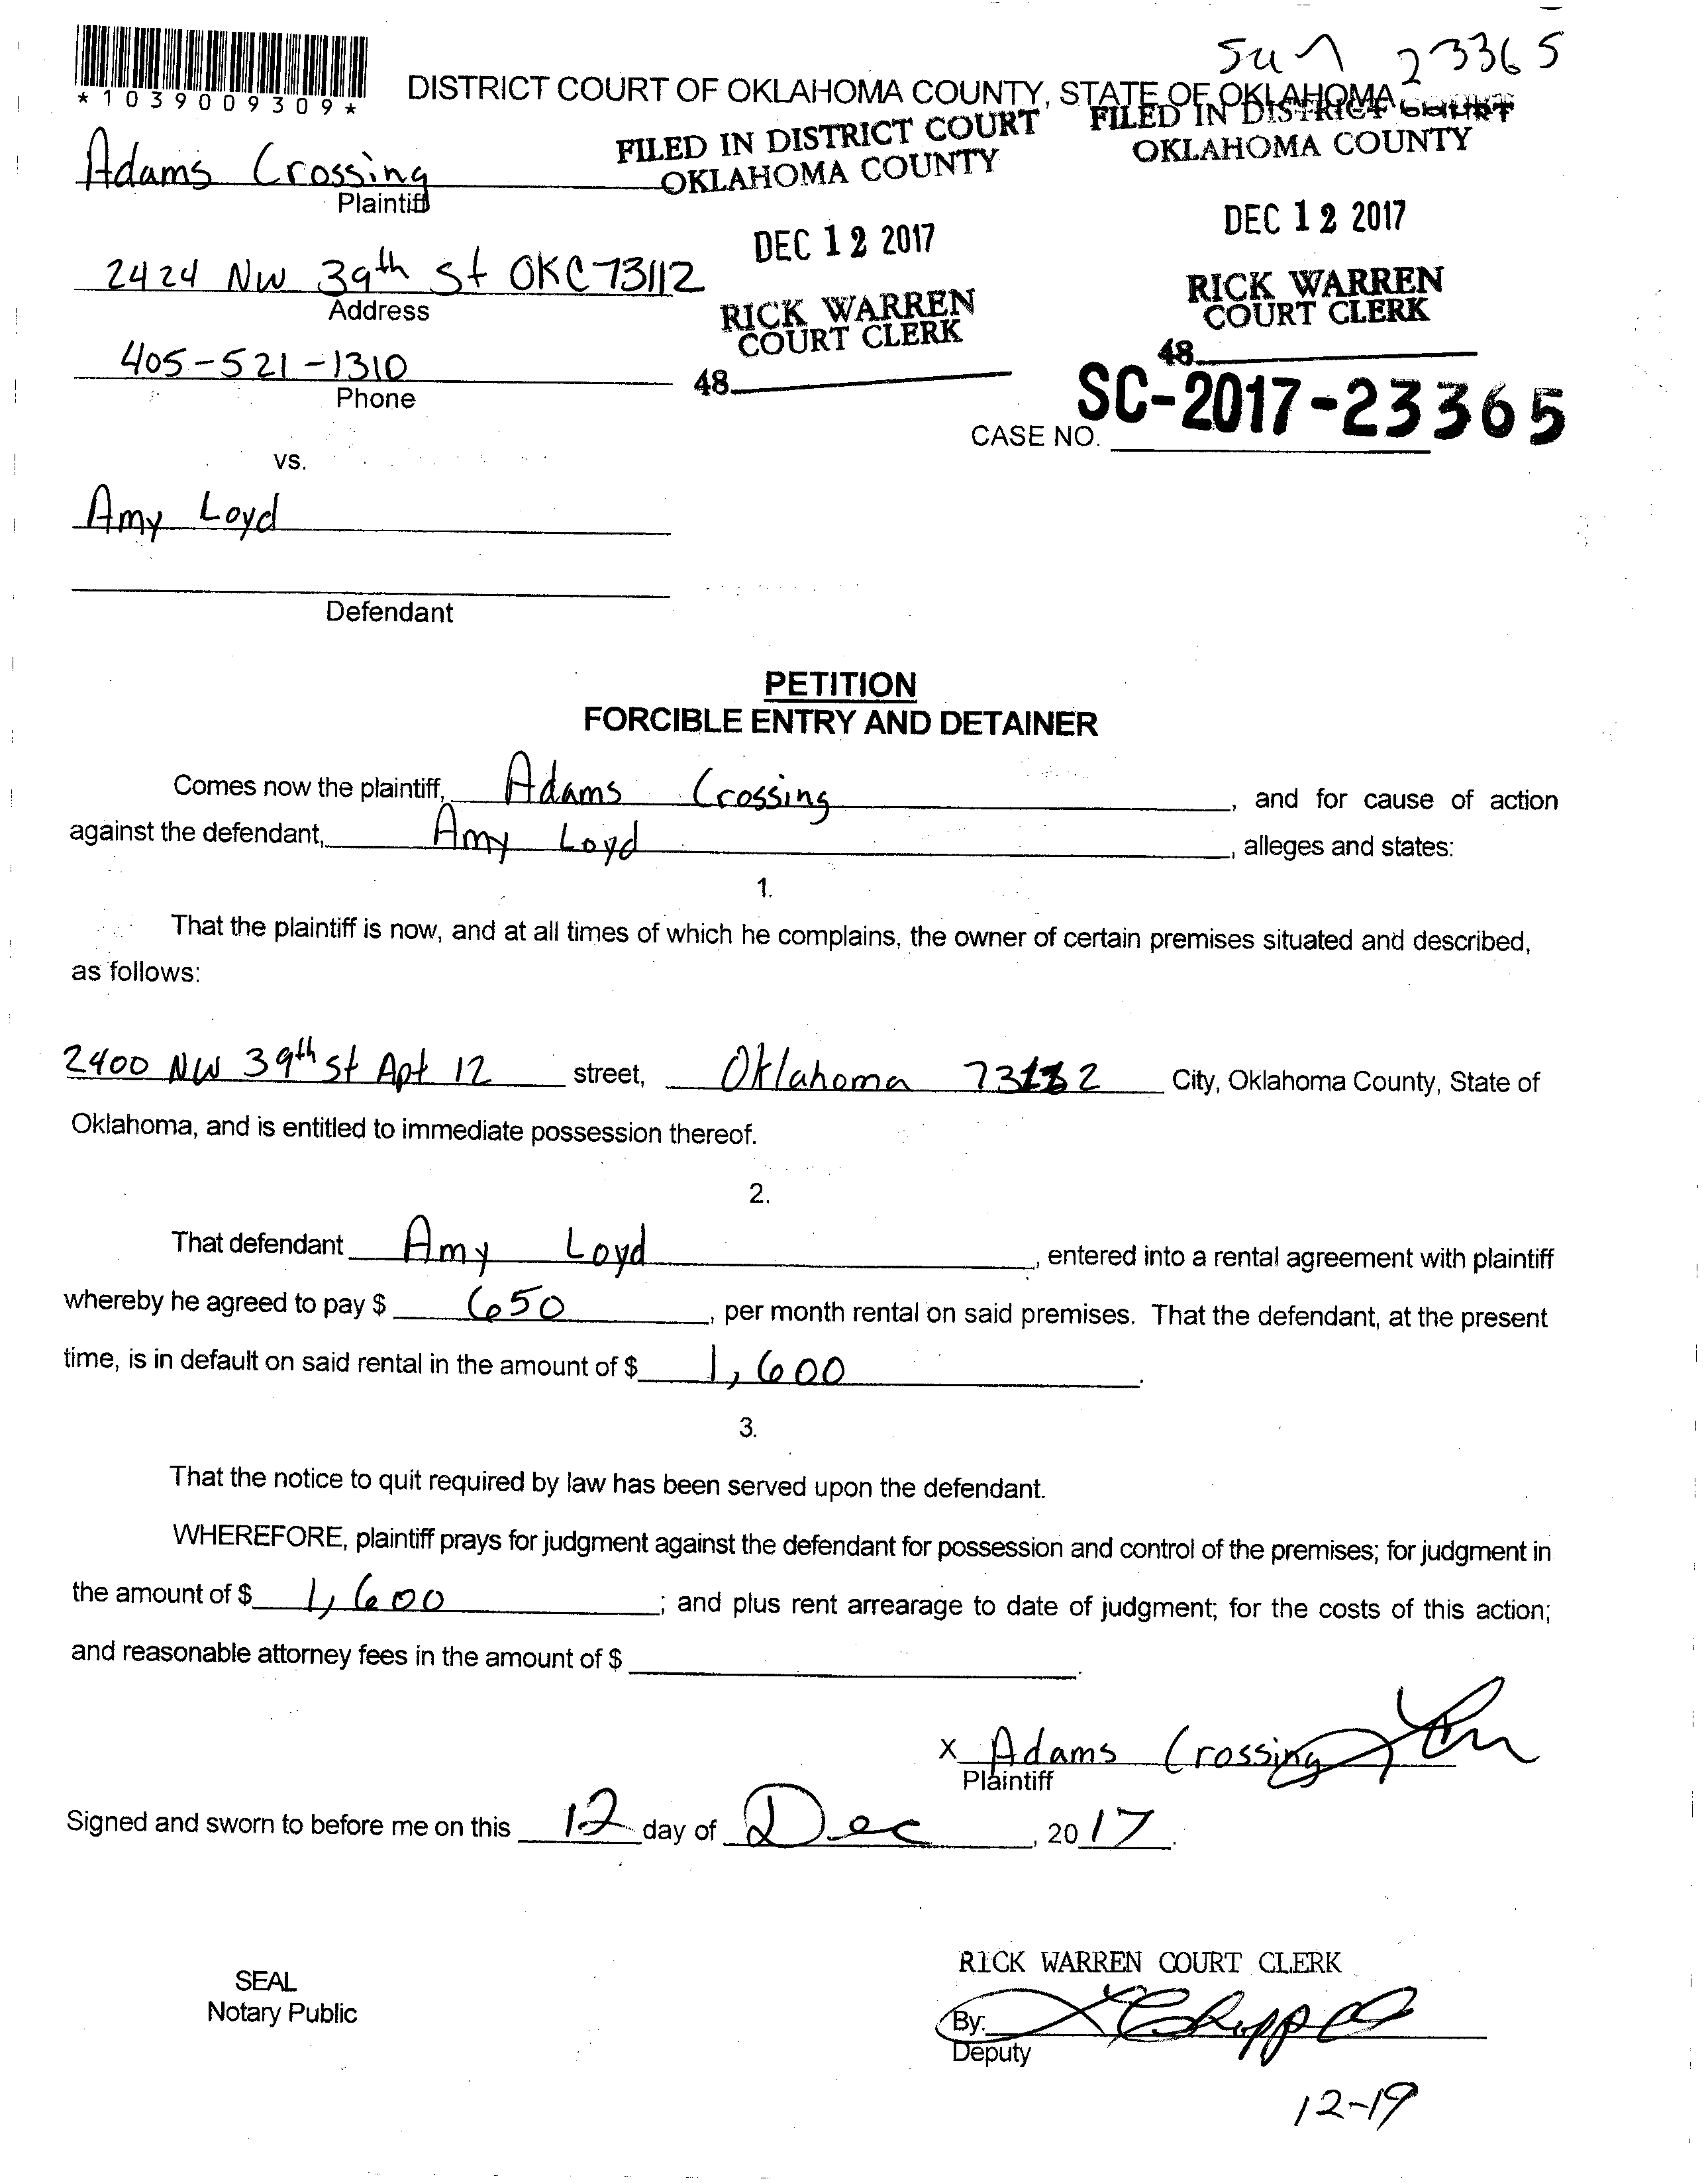 *1039009309*
23365
DISTRICT COURT OF OKLAHOMA COUNTY, STATE OF OKLAHOMA
FILED IN DISTRICT COURT
OKLAHOMA COUNTY
DEC 12 2017
RICK WARREN
COURT CLERK
48
FILED IN DISTRICT COURT
OKLAHOMA COUNTY
DEC 12 2017
RICK WARREN
COURT CLERK
48
Adams Crossing
Plaintiff
2424 NW 39th St OKC 73112
Address
405-521-1310
Phone
CASE NO. SC-2017-23365
vs.
Amy Loyd
Defendant
PETITION
FORCIBLE ENTRY AND DETAINER
Comes now the plaintiff, Adams Crossing, and for cause of action
against the defendant, Amy Loyd, alleges and states:
1.
That the plaintiff is now, and at all times of which he complains, the owner of certain premises situated and described,
as follows:
2400 NW 39th St Apt 12 street, Oklahoma City, Oklahoma County, State of
Oklahoma, and is entitled to immediate possession thereof.
2.
That defendant Amy Loyd, entered into a rental agreement with plaintiff
whereby he agreed to pay $ 650, per month rental on said premises. That the defendant, at the present
time, is in default on said rental in the amount of $ 1,600.
3.
That the notice to quit required by law has been served upon the defendant.
WHEREFORE, plaintiff prays for judgment against the defendant for possession and control of the premises; for judgment in
the amount of $ 1,600; and plus rent arrearage to date of judgment; for the costs of this action;
and reasonable attorney fees in the amount of $ .
X Adams Crossing
Plaintiff
Signed and sworn to before me on this 12 day of Dec, 2017.
SEAL
Notary Public
RICK WARREN COURT CLERK
By:
Deputy
12-19